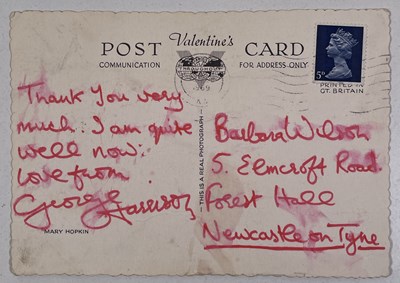 POST Valentine's CARD
COMMUNICATION FOR ADDRESS ONLY
5D
PRINTED IN
GT. BRITAIN
1969
Thank You very
much. I am quite
well now.
love from
George Harrison
MARY HOPKIN
THIS IS A REAL PHOTOGRAPH
Barbara Wilson
5. Elmcroft Road
Forest Hall
Newcastle on Tyne